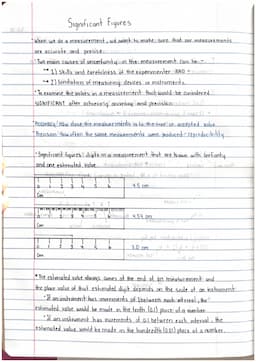 Significant Figures
• When we do a measurement, we want to make sure that our measurements
are accurate and precise.
• Two main causes of uncertainty in the measurement can be:-
→ 1) Skills and carefulness of the experimenter AND
→ 2) Limitation of measuring devices or instruments
• To examine the points in a measurement that would be considered
SIGNIFICANT after achieving accuracy and precision
Accuracy: How close the measurements is to the true or accepted value
Precision: How often the same measurements were produced
reproducibility
• Significant figures: digits in a measurement that are known with certainty
and one estimated value.
0 1 2 3 4 5 6
Cm
4.5 cm
0 1 2 3 4 5 6
Cm
4.54 cm
0 1 2 3 4 5 6
Cm
3.0 cm
• The estimated value always comes at the end of the measurement and
the place value of that estimated digit depends on the scale of an instrument.
• If an instrument has increments of 1 between each interval, the
estimated value would be made in the tenth (0.1) place of a number.
• If an instrument has increments of 0.1 between each interval, the
estimated value would be made in the hundredth (0.01) place of a number.